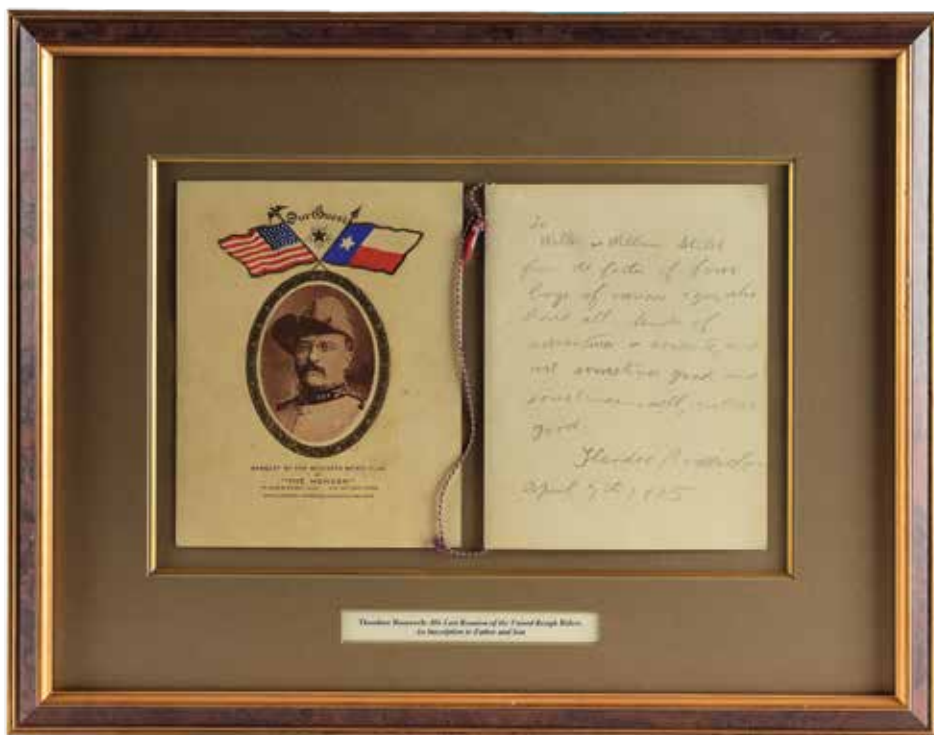 Our Guest
BANQUET OF THE BUSINESS MEN'S CLUB
AT
"THE MENGER"
To
William Still
from the father of four
boys of various ages, who
have all kinds of
adventures & accidents, and
are sometimes good and
sometimes, well, not so
good.
Theodore Roosevelt
April 7th 1905
Theodore Roosevelt: His Last Reunion of the United Rough Riders
An Inscription to Father and Son